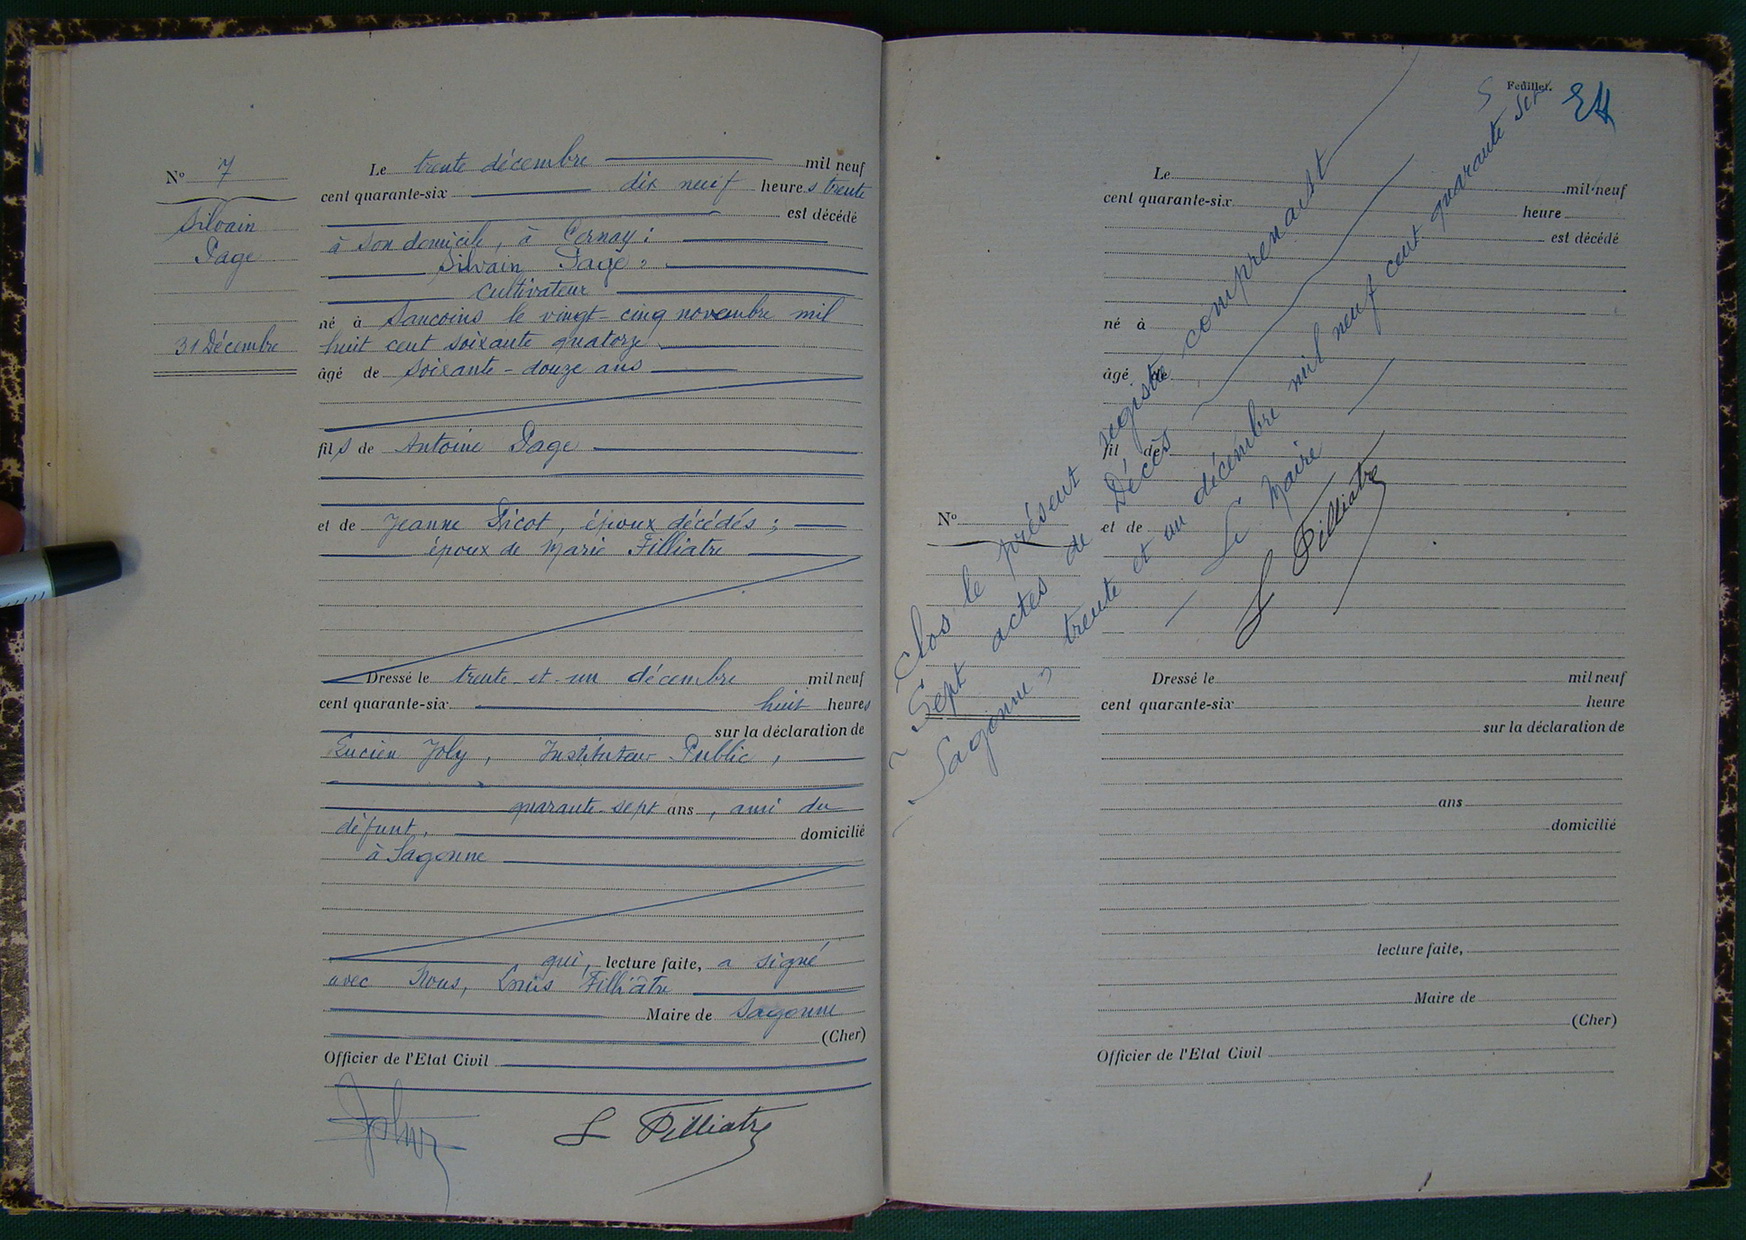 N° 7
Silvain
Page
31 Décembre
Le trente décembre mil neuf
cent quarante-six dix neuf heures trente
est décédé
à son domicile, à Cernay :
Silvain Page,
cultivateur
né à Sancoins le vingt-cinq novembre mil
huit cent soixante quatorze
âgé de soixante-douze ans
fils de Antoine Page
et de Jeanne Picot, époux décédés ;
époux de Marie Filliatre
Dressé le trente et un décembre mil neuf
cent quarante-six huit heures
sur la déclaration de
Lucien Joly, Instituteur Public,
quarante-sept ans, ami du
défunt, domicilié
à Sagonne
qui, lecture faite, a signé
avec Nous, Louis Filliâtre
Maire de Sagonne
(Cher)
Officier de l'Etat Civil
L Filliatre
Feuillet.
Clos le présent registre comprenant
Sept actes de Décès
Sagonne, trente et un décembre mil neuf cent quarante six
Le Maire
L Filliatre
N°
Le mil neuf
cent quarante-six
heure
est décédé
né à
âgé de
fil de
et de
Dressé le mil neuf
cent quarante-six heure
sur la déclaration de
ans
domicilié
lecture faite,
Maire de
(Cher)
Officier de l'Etat Civil